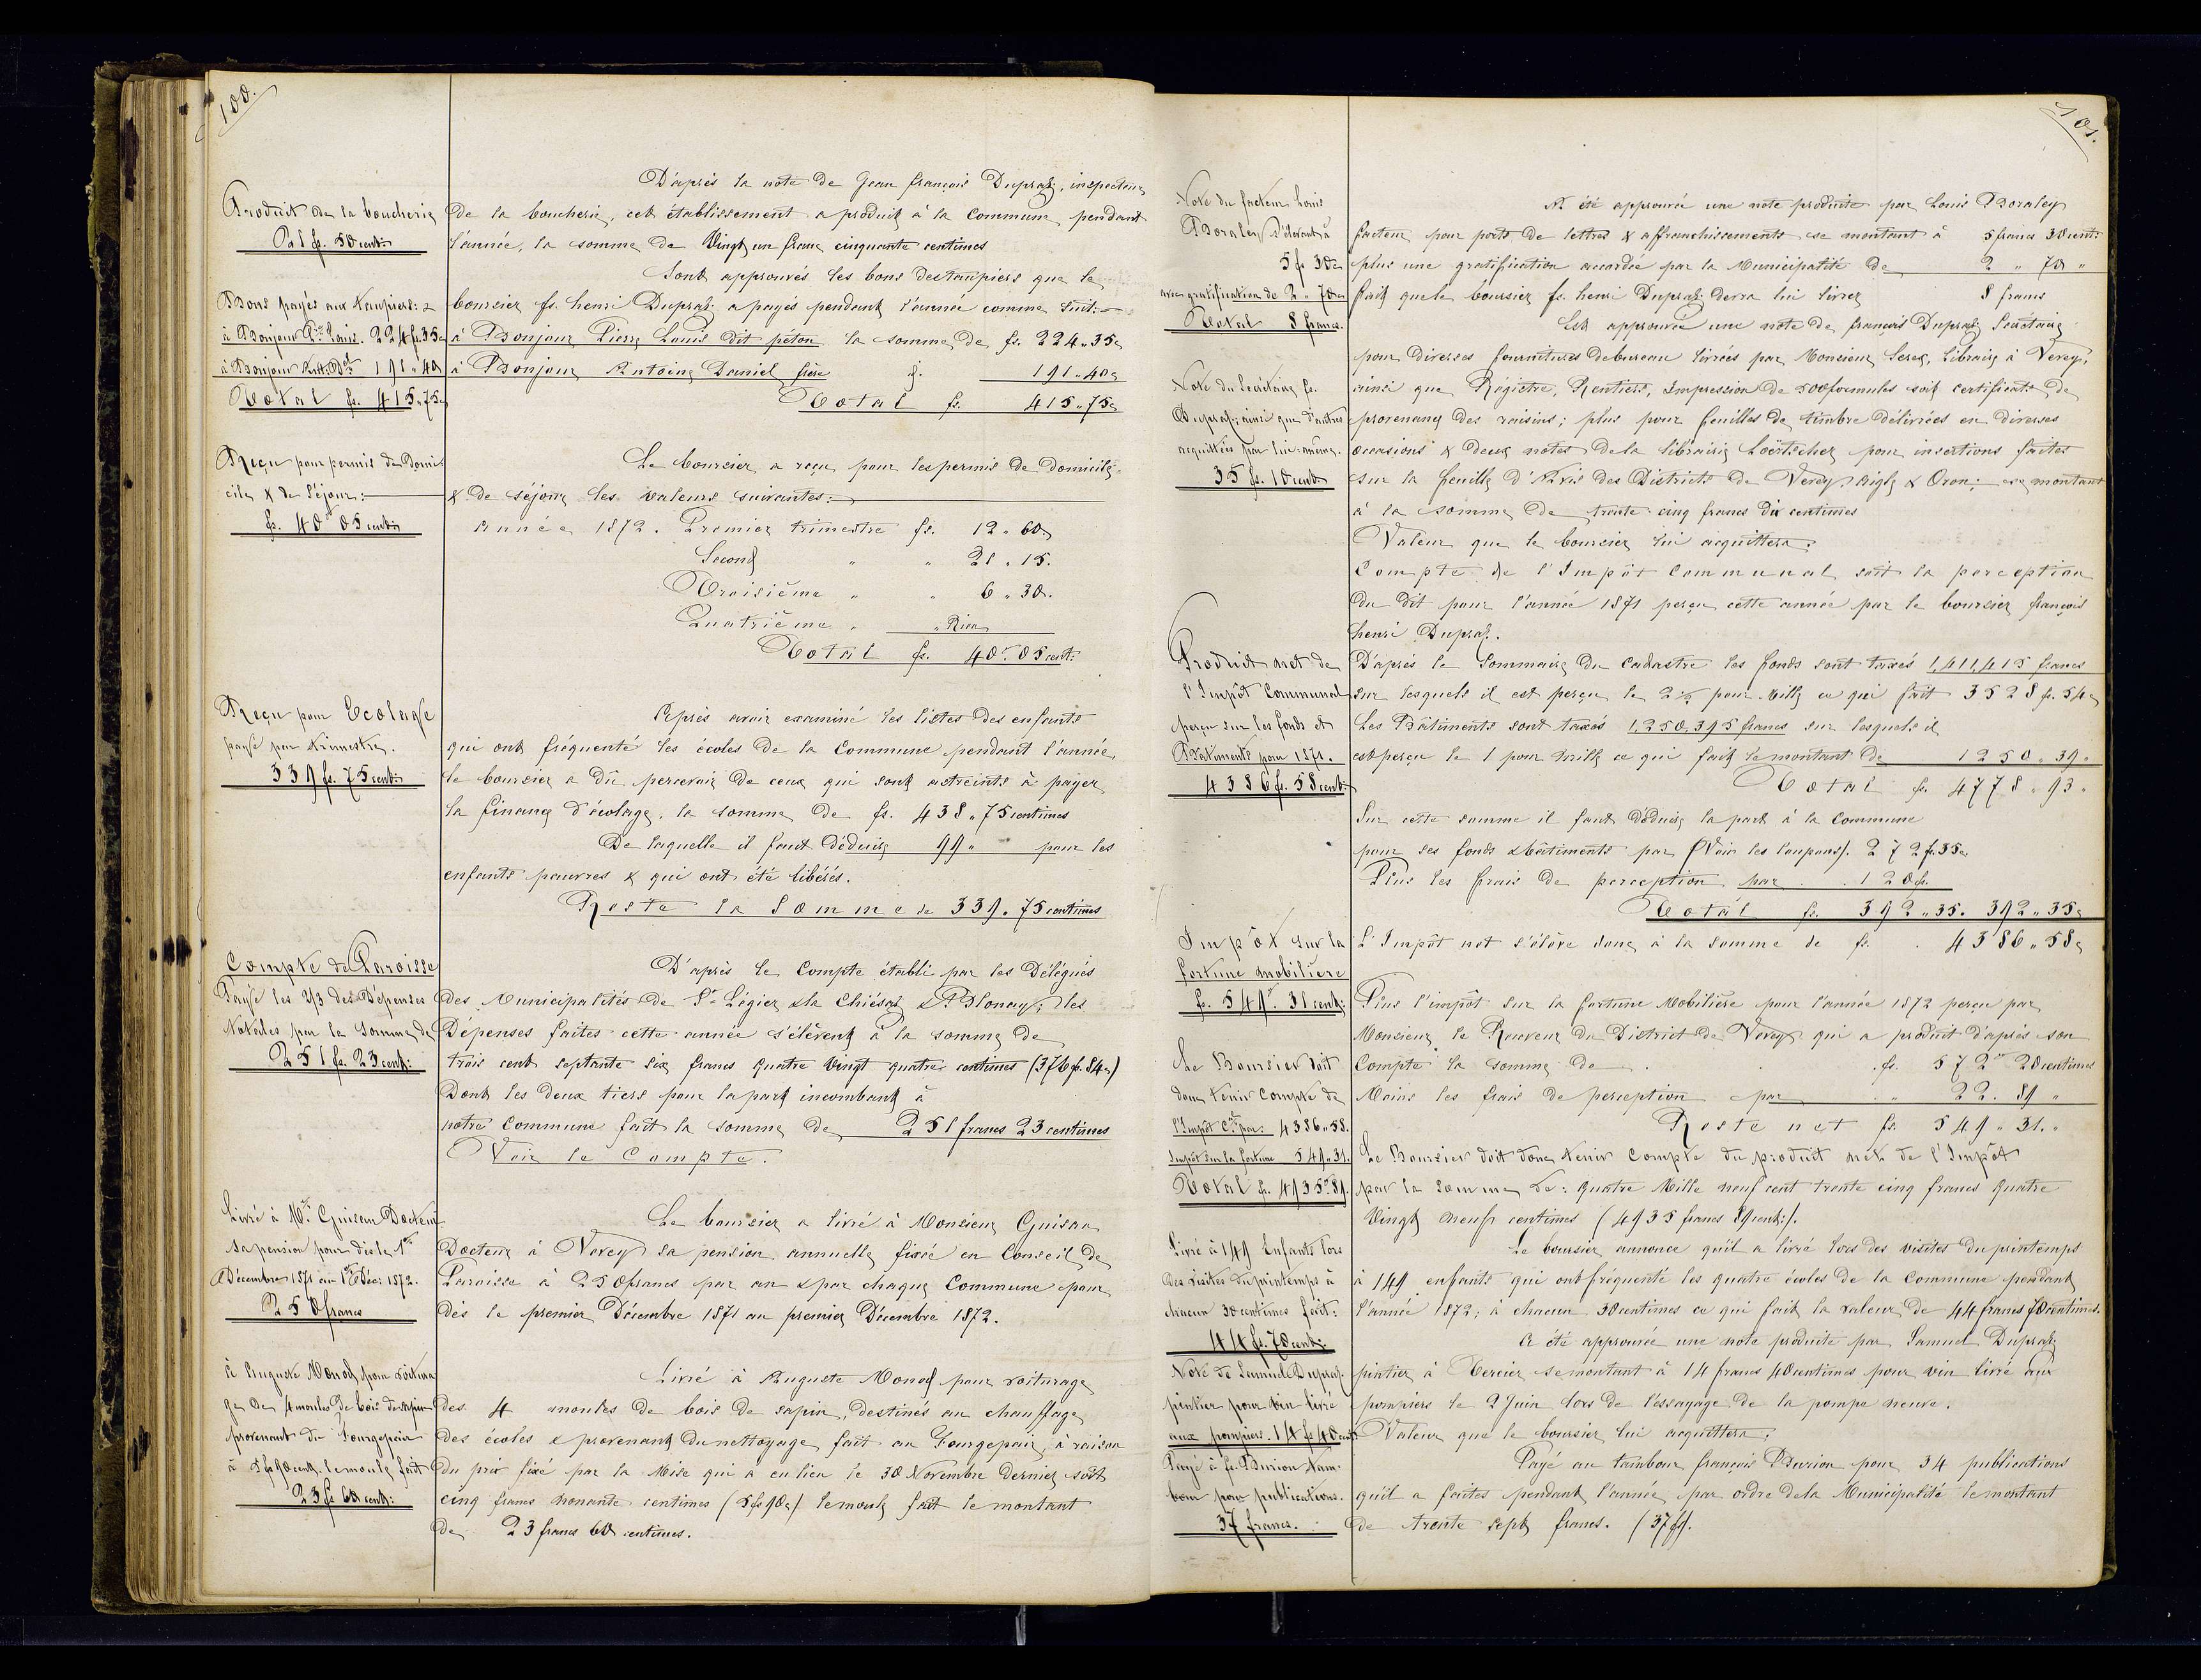 100.
Produit de la boucherie
21 fs. 50 cent:
Bons payés aux taupiers:
à Bonjour Pre Louis. 224 fs. 35c
à Bonjour Ant: Del 191 " 40c
Total fs. 415 " 75c
Reçu pour permis de Domi-
cile & de Séjour:
fs. 40 " 05 cent:
Reçu pour Ecolage
payé par trimestre.
339 fs. 75 cent:
Compte de Paroisse
Payé les 2/3 des Dépenses
Notables par la Somme de
251 fs. 23 cent:
Livré à Mr. Guisan Docteur
sa pension pour dès le 1er
Décembre 1871 au 1er Déc: 1872.
250 francs
à Auguste Monod, pour voitura
ge des 4 moules de bois de sapin
provenant du Fourgepain
à 5 fs 90 cent. le moule fait
23 fs 60 cent:
D'après la note de Jean François Dupraz, inspecteur
de la boucherie, cet établissement a produit à la Commune pendant
l'année, la somme de Vingt un franc cinquante centimes
Sont approuvés les bons des taupiers que le
boursier fs. henri Dupraz a payés pendant l'année comme suit:
à Bonjour Pierre Louis dit péton la somme de fs. 224 " 35c
à Bonjour Antoine Daniel frère 191 " 40c
Total fs. 415 " 75c
Le boursier a reçu pour les permis de domicile
& de séjour les valeurs suivantes:
Année 1872. Premier trimestre fs. 12 " 60c
Second " " 21 " 15.
Troisième " " 6 " 30.
Quatrième " " Rien
Total fs. 40 " 05 cent:
Après avoir examiné les listes des enfants
qui ont fréquenté les écoles de la Commune pendant l'année,
le boursier a dû percevoir de ceux qui sont astreints à payer
la finance d'écolage, la somme de fs. 438 " 75 centimes
De laquelle il faut déduire 99 " pour les
enfants pauvres & qui ont été libérés.
Reste la Somme de 339 " 75 centimes
D'après le Compte établi par les Délégués
des Municipalités de St. Légier & la Chiésaz & Blonay; les
Dépenses faites cette année s'élèvent à la somme de
trois cent septante six francs quatre vingt quatre centimes (376 fs. 84c)
Dont les deux tiers pour la part incombant à
notre Commune fait la somme de 251 francs 23 centimes
Voir le Compte.
Le boursier a livré à Monsieur Guisan
Docteur à Vevey sa pension annuelle fixée en Conseil de
Paroisse à 250 francs par an & par chaque Commune pour
dès le premier Décembre 1871 au premier Décembre 1872.
Livré à Auguste Monod pour voiturage
des 4 moules de bois de sapin, destinés au chauffage
des écoles & provenant du nettoyage fait au Fourgepain, à raison
du prix fixé par la Mise qui a eu lieu le 30 Novembre dernier soit
cinq francs nonante centimes (5 fs 90c) le moule fait le montant
de 23 francs 60 centimes.
101.
Note du facteur Louis
Boraley s'élevant à
5 fs 30c
avec gratification de 2 " 70c
Total 8 francs.
Note du Secrétaire fs.
Dupraz; ainsi que d'autres
acquittées par lui-même.
35 fs. 10 cent:
Produit net de
l'Impôt Communal
perçu sur les fonds et
Bâtiments pour 1871.
4386 fs. 58 cent:
Impôt sur la
fortune mobilière
fs. 549 " 31 cent:
Le Boursier doit
donc tenir Compte de
l'Impôt Cal par: 4386 " 58.
Impôt sur la fortune 549 " 31.
Total fs. 4935 " 89.
Livré à 149 Enfants lors
des visites du printemps à
chacun 30 centimes fait:
44 fs. 70 cent:
Note de Samuel Dupraz
pintier pour vin livré
aux pompiers. 14 fs 40 cent:
Payé à fs. Burion tam-
bour pour publications.
37 francs.
A été approuvée une note produite par Louis Boraley
facteur pour ports de lettres & affranchissements se montant à 5 francs 30 cent:
plus une gratification accordée par la Municipalité de 2 " 70 "
fait que le boursier fs. henri Dupraz devra lui livrer 8 francs
Est approuvée une note de françois Dupraz Secrétaire
pour diverses fournitures de bureau livrées par Monsieur Libraire à Vevey,
ainsi que Régistre, Rentiers, Impression de 500 formules soit certificats de
provenance des raisins; plus pour feuilles de timbre délivrées en diverses
occasions & deux notes de la librairie Loertscher pour insertions faites
sur la feuille d'Avis des Districts de Vevey, Aigle & Oron; se montant
à la somme de trente cinq francs dix centimes
Valeur que le boursier lui acquittera.
Compte de l'Impôt Communal soit la perception
du dit pour l'année 1871 perçu cette année par le boursier françois
henri Dupraz.
D'après le Sommaire du Cadastre les fonds sont taxés 1,411,415 francs
sur lesquels il est perçu le 2 1/2 pour Mille ce qui fait 3528 fs. 54c
Les Bâtiments sont taxés 1,250,395 francs sur lesquels il
est perçu le 1 pour mille ce qui fait le montant de 1250 " 39 "
Total fs. 4778 " 93 "
Sur cette somme il faut déduire la part à la Commune
pour ses fonds & bâtiments par (Voir les Coupons). 272 fs. 35c
Plus les frais de perception par 120 fs.
Total fs. 392 " 35. 392 " 35c
L'Impôt net s'élève donc à la somme de fs. 4386 " 58c
Plus l'impôt sur la fortune Mobilière pour l'année 1872 perçu par
Monsieur le Receveur du District de Vevey qui a produit d'après son
Compte la somme de fs. 572 " 20 centimes
Moins les frais de perception par " 22 " 89 "
Reste net fs. 549 " 31 "
Le Boursier doit donc tenir Compte du produit net de l'Impôt
par la Somme de: quatre Mille neuf cent trente cinq francs quatre
Vingt neuf centimes (4935 francs 89 cent:).
Le boursier annonce qu'il a livré lors des visites du printemps
à 149 enfants qui ont fréquenté les quatre écoles de la Commune pendant
l'année 1872; à chacun 30 centimes ce qui fait la valeur de 44 francs 70 centimes.
A été approuvée une note produite par Samuel Dupraz
pintier à Tercier se montant à 14 francs 40 centimes pour vin livré aux
pompiers le 2 Juin lors de l'essayage de la pompe neuve.
Valeur que le boursier lui acquittera.
Payé au tambour françois Burion pour 34 publications
qu'il a faites pendant l'année par ordre de la Municipalité le montant
de trente sept francs. (37 fs).